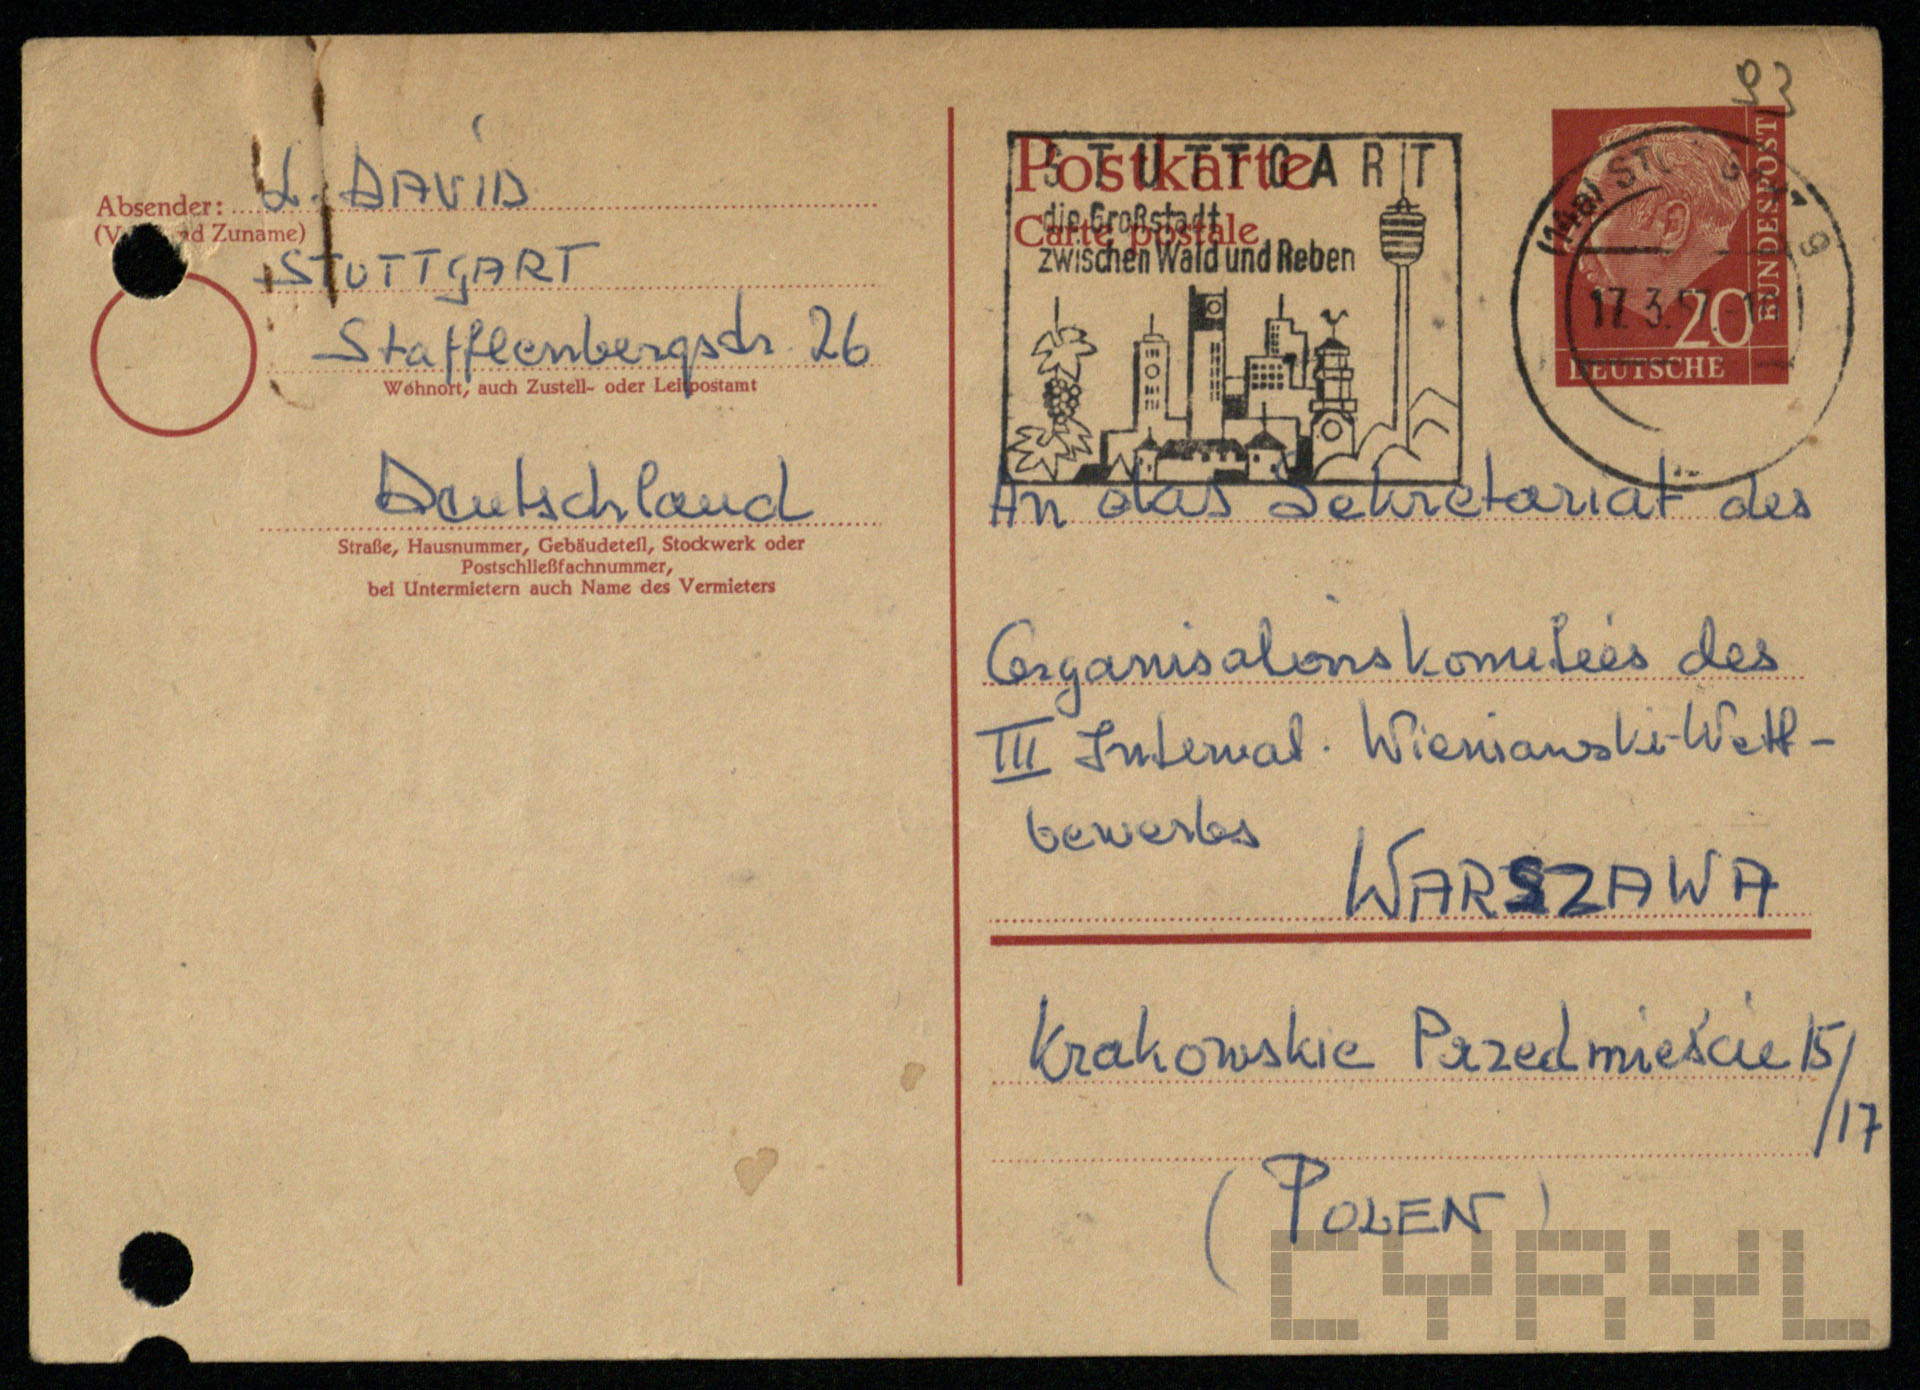 93
Absender:
L. DAVID
Zuname)
STUTTGART
Stafflenbergstr. 26
Wohnort, auch Zustell- oder Leitpostamt
Deutschland
Straße, Hausnummer, Gebäudeteil, Stockwerk oder
Postschließfachnummer,
bei Untermietern auch Name des Vermieters
Postkarte
Carte postale
STUTTGART
die Großstadt
zwischen Wald und Reben
17. 3.
20
DEUTSCHE
BUNDESPOST
An das Sekretariat des
Organisationskomitées des
III Internat. Wieniawski-Wett-
bewerbs
WARSZAWA
Krakowskie Przedmieście 15/
/17
(POLEN)
CYRYL